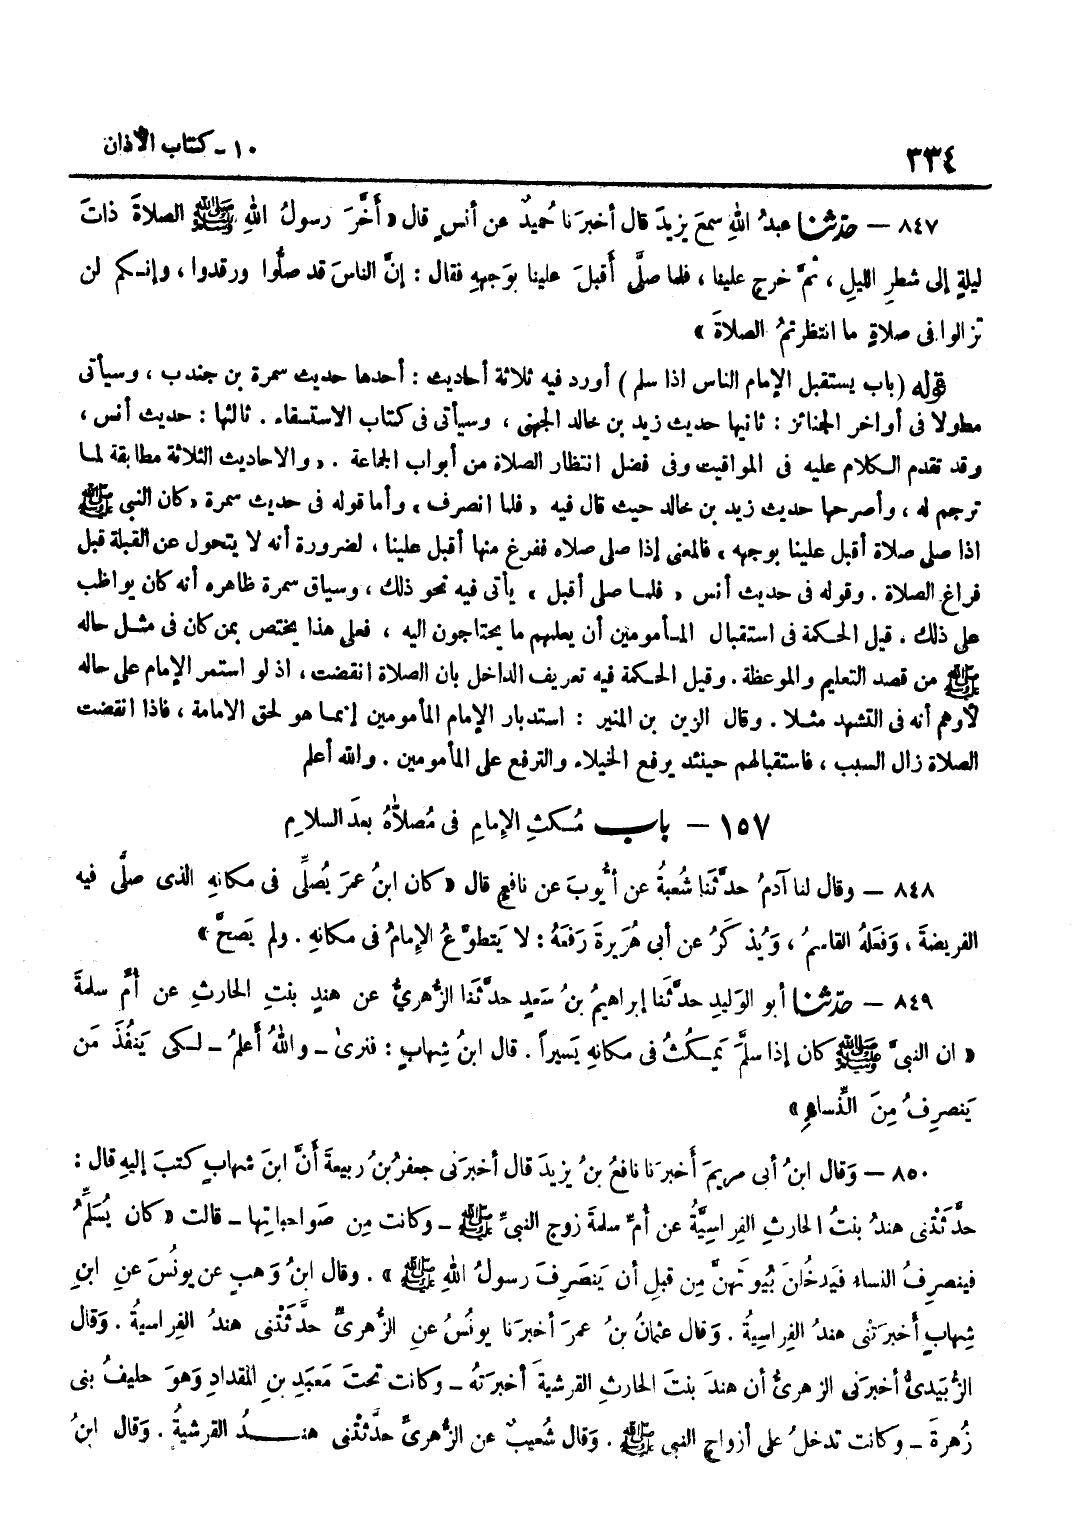 ٣٣٤
١٠ - كتاب الأذان
٨٤٧ — حدّثنا عبدُ اللهِ سمعَ يزيدَ قال أخبرَنا حُميدٌ عن أنسٍ قال « أَخَّرَ رسولُ اللهِ ﷺ الصلاةَ ذاتَ
ليلةٍ إلى شطرِ الليلِ ، ثمَّ خرج علينا ، فلما صلَّى أَقبلَ علينا بوَجههِ فقال : إنَّ الناسَ قد صلُّوا ورقدوا ، وإنكم لن
تزالوا فى صلاةٍ ما انتظرتمُ الصلاةَ »
قوله (باب يستقبل الإمام الناس اذا سلم) أورد فيه ثلاثة أحاديث : أحدها حديث سمرة بن جندب ، وسيأتى
مطولا فى أواخر الجنائز : ثانيها حديث زيد بن خالد الجهنى ، وسيأتى فى كتاب الاستسقاء . ثالثها : حديث أنس ،
وقد تقدم الكلام عليه فى المواقيت وفى فضل انتظار الصلاة من أبواب الجماعة . والاحاديث الثلاثة مطابقة لما
ترجم له ، وأصرحها حديث زيد بن خالد حيث قال فيه « فلما انصرف » وأما قوله فى حديث سمرة « كان النبى ﷺ
اذا صلى صلاة أقبل علينا بوجهه » فالمعنى إذا صلى صلاه ففرغ منها أقبل علينا ، لضرورة أنه لا يتحول عن القبلة قبل
فراغ الصلاة . وقوله فى حديث أنس « فلما صلى أقبل » يأتى فيه نحو ذلك ، وسياق سمرة ظاهره أنه كان يواظب
على ذلك . قيل الحكمة فى استقبال المأمومين أن يعلمهم ما يحتاجون اليه ، فعلى هذا يختص بمن كان فى مثل حاله
ﷺ من قصد التعليم والموعظة . وقيل الحكمة فيه تعريف الداخل بان الصلاة انقضت ، اذ لو استمر الإمام على حاله
لأوهم أنه فى التشهد مثلا . وقال الزين بن المنير : استدبار الإمام المأمومين إنما هو لحق الامامة ، فاذا انقضت
الصلاة زال السبب ، فاستقبالهم حينئذ يرفع الخيلاء والترفع على المأمومين . والله أعلم
١٥٧ — باب مُكثِ الإمامِ فى مُصلاَّهُ بعدَ السلامِ
٨٤٨ — وقال لنا آدمُ حدَّثَنا شُعبةُ عن أيُّوبَ عن نافعٍ قال « كان ابنُ عمرَ يُصلِّى فى مكانهِ الذى صلَّى فيه
الفريضةَ ، وَفعَلهُ القاسمُ ، وَيُذكَرُ عن أبى هُرَيرةَ رَفعَهُ : لا يَتطوَّعُ الإمامُ فى مكانهِ . ولم يَصحَّ »
٨٤٩ — حدّثنا أبو الوَليدِ حدَّثَنا إبراهيمُ بنُ سَعدٍ حدَّثَنا الزُّهرىُّ عن هندٍ بنتِ الحارثِ عن أمِّ سلمةَ
« ان النبىَّ ﷺ كان إذا سلَّمَ يَمكُثُ فى مكانهِ يَسيراً . قال ابنُ شِهابٍ : فنرىٰ – واللهُ أعلمُ – لكى يَنفُذَ مَن
يَنصرِفُ مِنَ النِّساءِ »
٨٥٠ — وَقال ابنُ أبى مريمَ أخبرَنا نافعُ بنُ يزيدَ قال أخبرَنى جعفرُ بنُ ربيعةَ أنَّ ابنَ شهابٍ كتبَ إليهِ قال :
حدَّثَتْنى هندُ بنتُ الحارثِ الفِراسِيَّةُ عن أمِّ سلمةَ زوجِ النبىِّ ﷺ – وكانت مِن صَواحباتِها – قالت « كان يُسَلِّمُ
فينصرِفُ النساء فيَدخُلنَ بُيوتَهنَّ مِن قبلِ أن يَنصَرِفَ رسولُ اللهِ ﷺ » . وقال ابنُ وَهبٍ عن يونُسَ عنِ ابنِ
شِهابٍ أَخبرَتْنى هندُ الفِراسِيةُ . وَقال عثمانُ بنُ عمرَ أخبرَنا يونُسُ عنِ الزُّهرىِّ حدَّثَتْنى هندُ الفِراسيةُ . وَقال
الزُّبَيدىُّ أخبرَنى الزهرىُّ أن هندَ بنتَ الحارثِ القرشيةَ أخبرَتهُ – وكانت تحتَ مَعبَدِ بنِ المقدادِ وَهوَ حليفُ بنى
زُهرةَ – وكانت تدخلُ على أزواجِ النبى ﷺ . وَقال شُعيبٌ عن الزُّهرىِّ حدَّثتْنى هنـدُ القرشيةُ . وَقال ابنُ